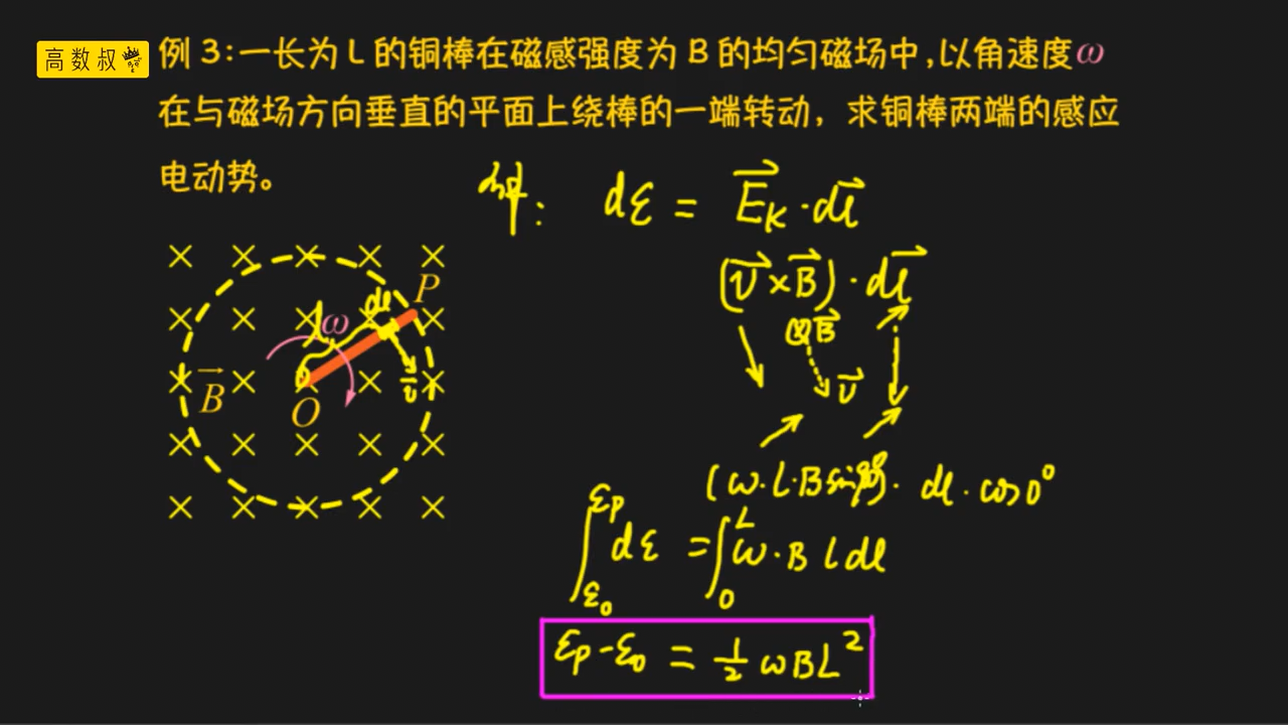 高数叔
例 3:一长为 L 的铜棒在磁感强度为 B 的均匀磁场中,以角速度ω
在与磁场方向垂直的平面上绕棒的一端转动，求铜棒两端的感应
电动势。
解: dε = E⃗k · dl⃗
(v⃗ × B⃗) · dl⃗
⊗B⃗
v⃗
P
dl
l
ω
v⃗
B⃗
O
(ω·l·B sin90°)· dl · cos0°
∫_{ε0}^{εp} dε = ∫_0^L ω·B l dl
εp - ε0 = 1/2 ωBL²